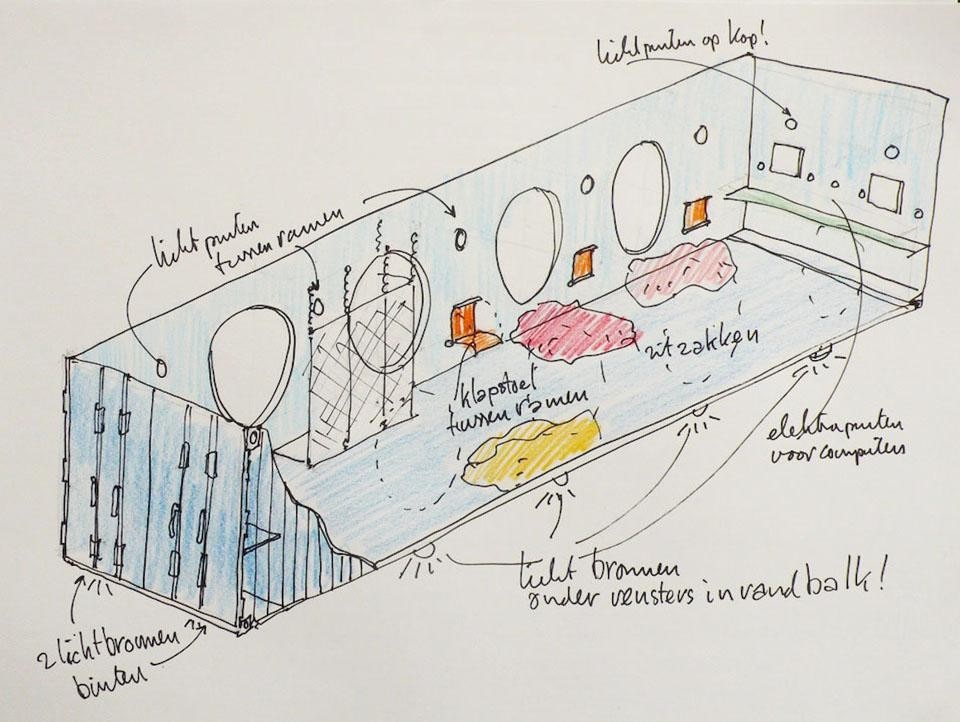 lichtpunten op kop!
lichtpunten
tussen ramen
klapstoel
tussen ramen
zitzakken
elektrapunten
voor computers
licht bronnen
onder vensters in randbalk!
2 lichtbronnen
buiten